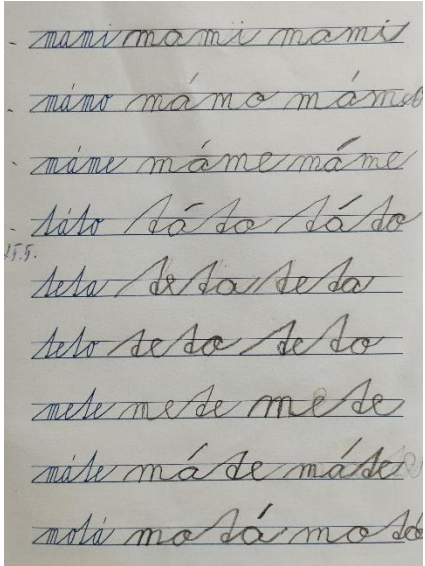 mami mami mami
mámo mámo mámo
máme máme máme
táto táto táto
15.5.
teta teta teta
teto teto teto
mete mete mete
máte máte máte
motá motá motá